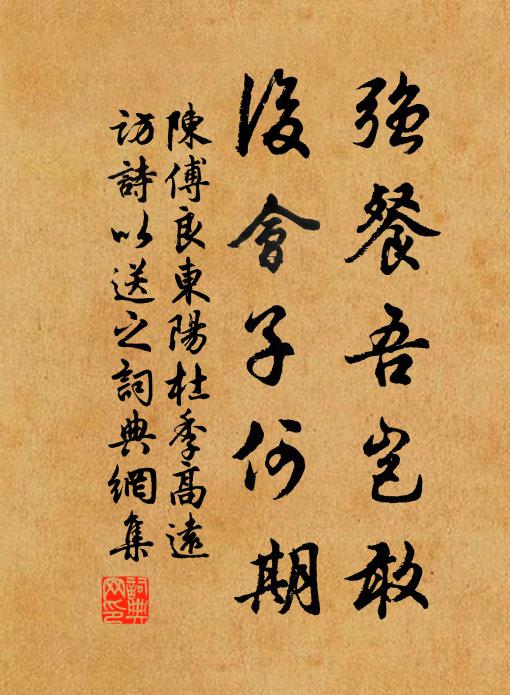 強餐吾豈敢
後會子何期
陳傅良東陽杜季高遠
訪詩以送之詞典網集
詞典网印